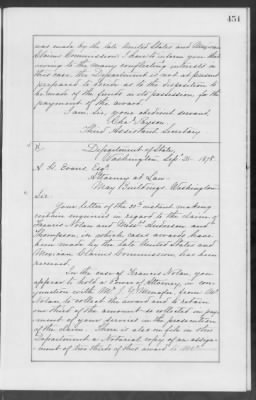 451
was made by the late United States and Mexican
Claims Commission. I have to inform you that
owing to the many conflicting interests in
this case, the Department is not at present
prepared to decide as to the disposition to
be made of the funds in its possession, for the
payment of the award.
I am Sir, your obedient servant,
Chas Payson,
Third Assistant Secretary
Department of State,
Washington, Sept 1878.
Evans Esqr
Attorney at Law
May Buildings, Washington
Sir
Your letter of the inst. making
certain inquiries in regard to the claims of
Francis Nolan and Messrs Anderson and
Thompson, in which cases awards have
been made by the late United States and
Mexican Claims Commission, has been
received.
In the case of Francis Nolan, you
appear to hold a Power of Attorney, in con-
junction with Mr from Mr
Nolan, to collect the award and to retain
one third of the amount so collected in pay-
ment of your services in the prosecution
of the claim. There is also on file in this
Department a Notarial copy of an assign-
ment of two thirds of this award to